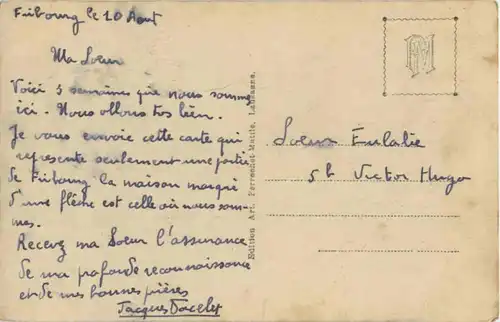 Fribourg le 20 Aout
Ma Soeur
Voici 3 semaines que nous sommes
ici. Nous allons très bien.
Je vous envoie cette carte qui
represente seulement une partie
de Fribourg la maison marqué
d'une flêche est celle où nous som-
mes.
Recevez ma Soeur l'assurance
de ma profonde reconnaissance
et de mes bonnes prières
Jacques
Edition Art. Perrochet-Matile, Lausanne.
Soeur Eulalie
5b Victor Hugo